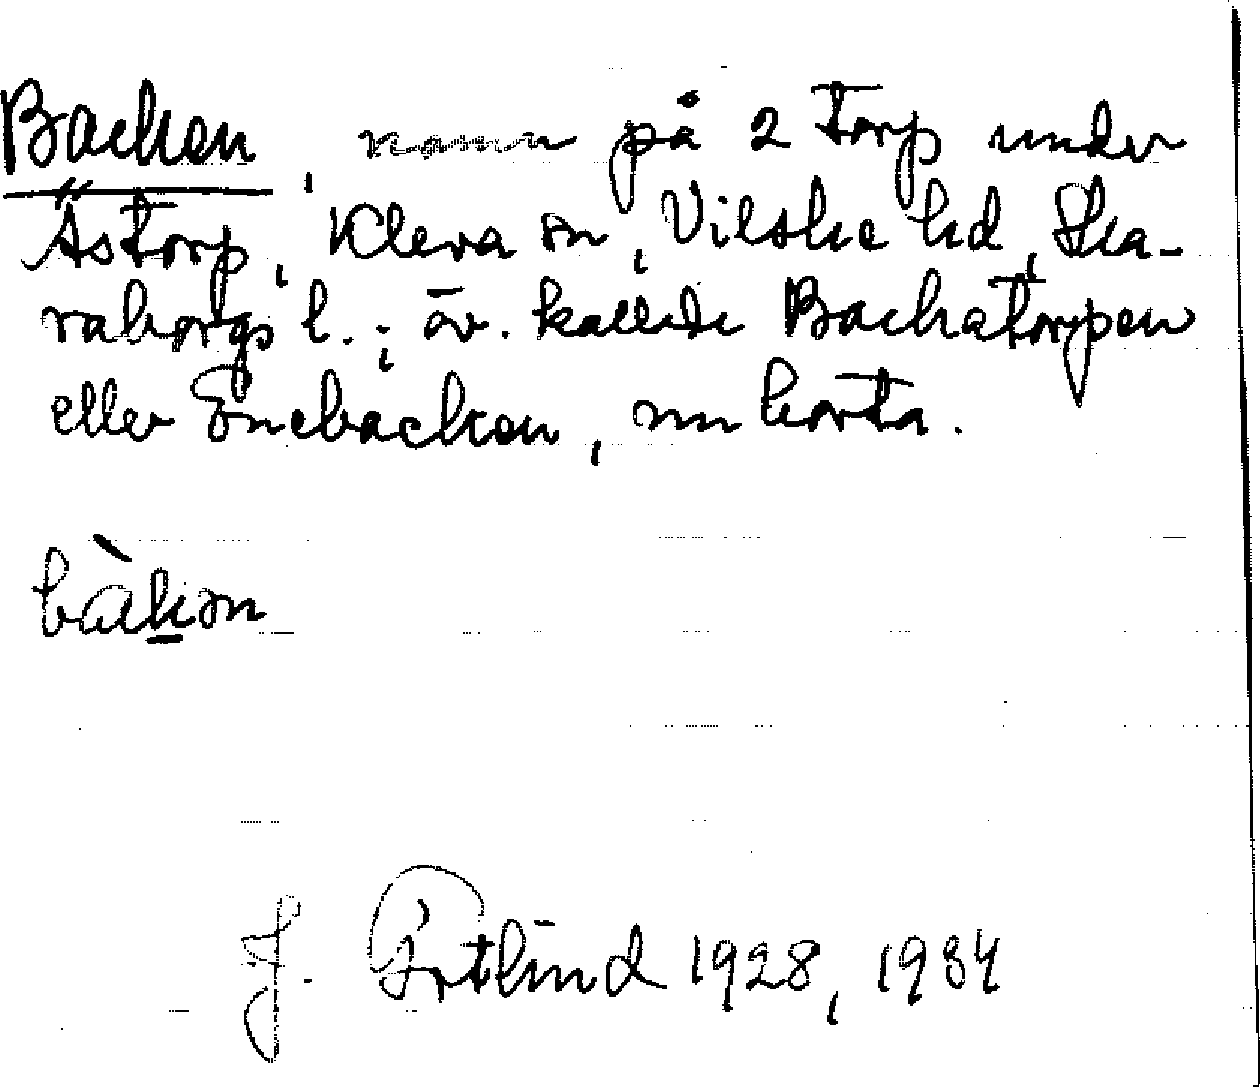 Backen, namn på 2 torp under
Åstorp, Kleva sn, Vilske hd, Ska-
raborgs l.; äv. kallade Backatorpen
eller Enebacken, nu borta.
bàkən
J. Götlind 1928, 1934